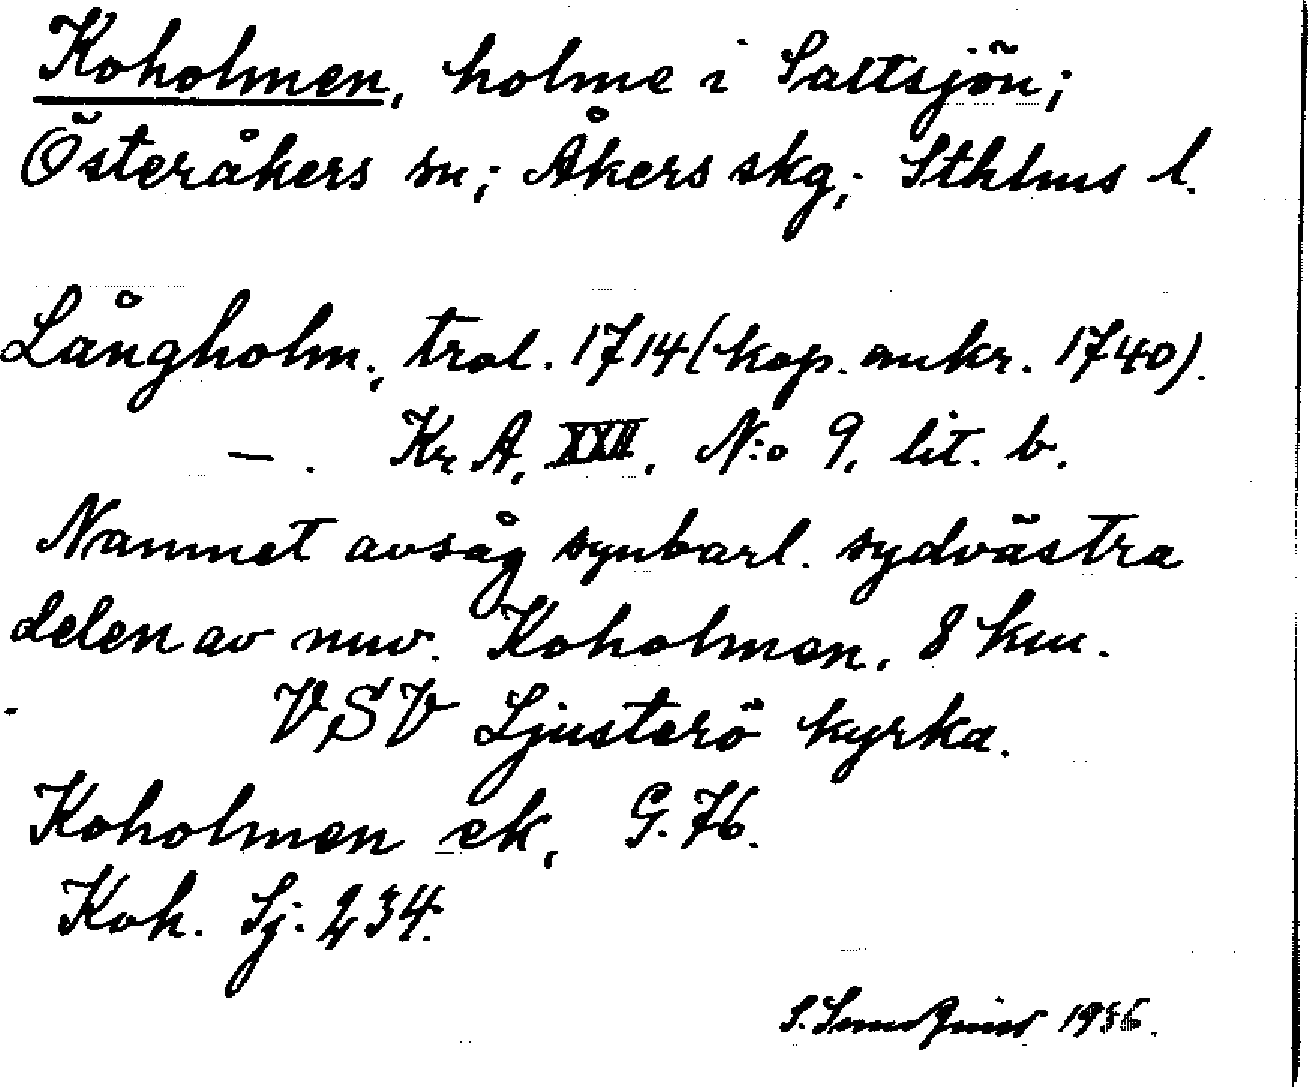 Koholmen, holme i Saltsjön;
Österåkers sn; Åkers skg; Sthlms l.
Långholm, trol. 1714 (kop. omkr. 1740).
—. Kr A, XXII, N:o 9, lit. b.
Namnet avsåg synbarl. sydvästra
delen av nuv. Koholmen, 8 km.
VSV Ljusterö kyrka.
Koholmen ek, G. 76.
Koh. Sj. 234.
S. 1936.